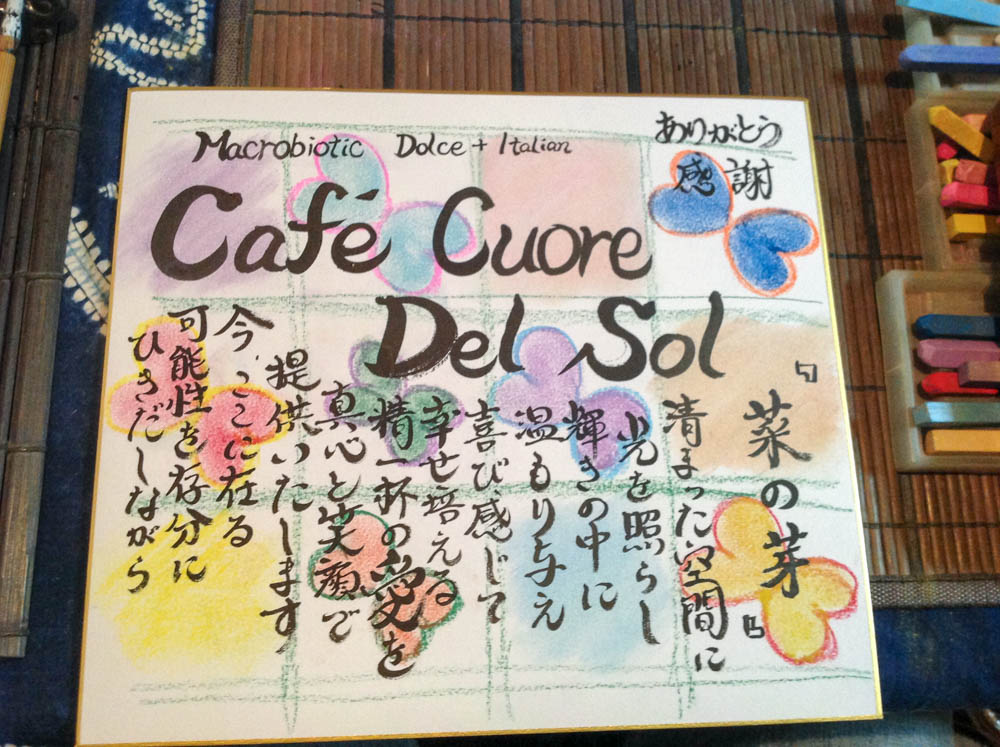 Macrobiotic Dolce + Italian
Café Cuore
Del Sol
ありがとう
感謝
「菜の芽」
清まった空間に
光を照らし
輝きの中に
温もり与え
喜び感じて
幸せ培える
精一杯の愛を
真心と笑顔で
提供いたします
今、ここに在る
可能性を存分に
ひきだしながら